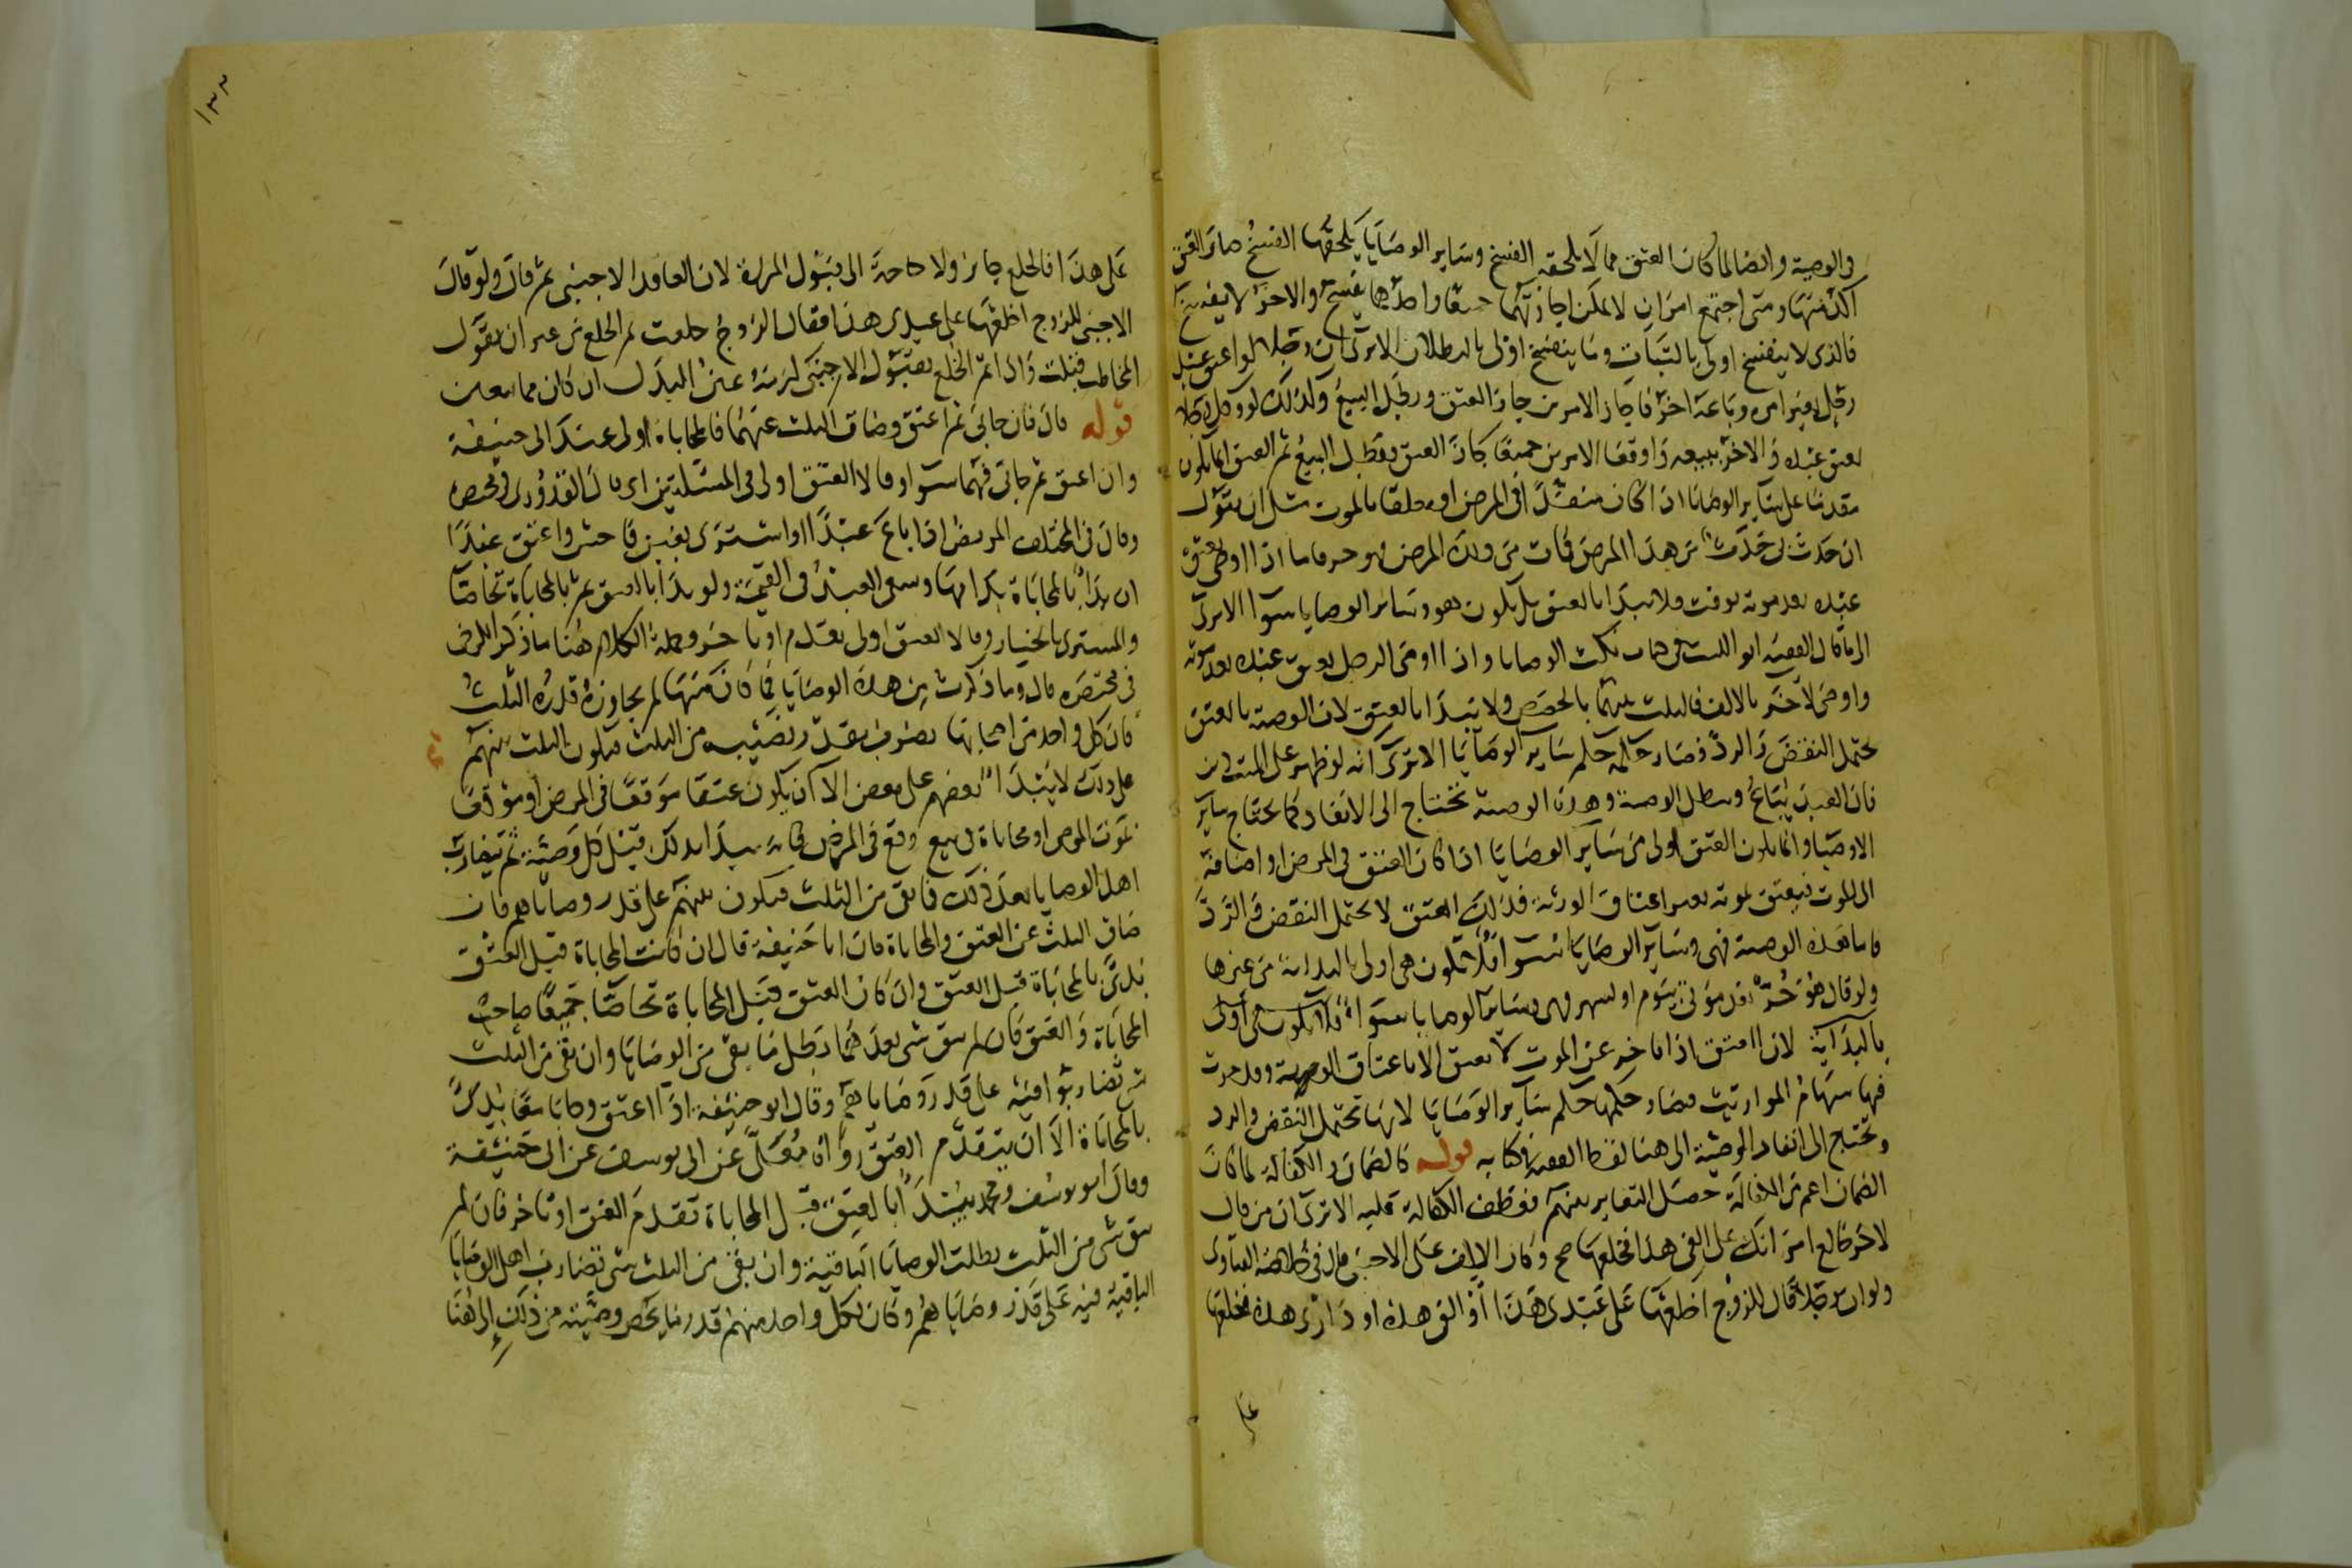 في الوصية وايضا لما كان العتق مما لا يلحقه الفسخ وساير الوصايا يلحقها الفسخ صار العتق
اكد منها ومتى اجتمع امران لا يمكن اجازتهما معا واحدهما يفسخ والاخر لا يفسخ
فالذي لا ينفسخ اولى بالثبات وما ينفسخ اولى بالبطلان الا ترى ان رجلا لو اعتق عبد
رجل بغير امره وباعه اخر فاجاز الامرين جاز العتق وبطل البيع وكذلك لو وكل رجلا
بعتق عبده والاخر ببيعه واوقعا الامرين جميعا جاز العتق وبطل البيع ثم العتق انما يكون
مقدما على ساير الوصايا اذا كان منفذا في المرض او معلقا بالموت مثل ان يقول
ان حدث بي حدث من هذا المرض فمات من ذلك المرض فهو حر فاما اذا اوصى بعتق
عبده بعد موته بوقت فلا يبدا بالعتق بل يكون هو وساير الوصايا سوا الا ترى
الى ما قال الفقيه ابو الليث في كتاب نكت الوصايا واذا اوصى الرجل بعتق عبده بعد موته
واوصى لاخر بالالف فالثلث بينهما بالحصص ولا يبدا بالعتق لان الوصية بالعتق
يحتمل النقض والرد فصار حكمه حكم ساير الوصايا الا ترى انه لو ظهر على الميت دين
فان العبد يباع وتبطل الوصية وهذه الوصية تحتاج الى الانفاد كما يحتاج ساير
الاوصيا وانما يكون العتق اولى من ساير الوصايا اذا كان العتق في المرض او اضافه
الى الموت فيعتق بموته بغير اعتاق الورثة فذلك العتق لا يحتمل النقض والرد
فاما هذه الوصية فهي وساير الوصايا سوا فلا تكون هي اولى بالبداية من غيرها
ولو قال هو حر بعد موتي بيوم او بشهر فهي وساير الوصايا سوا فلا تكون هي اولى
بالبداية لان العتق اذا تاخر عن الموت لا يعتق الا باعتاق الوصية وقد جرت
فيها سهام المواريث فصار حكمها حكم ساير الوصايا لانها تحتمل النقض والرد
وتحتاج الى انفاد الوصية الى هنا لفظ الفقيه في كتابه قوله كالضمان والكفالة لما كان
الضمان اعم من الكفالة حصل التغاير بينهم فعطف الكفالة عليه الا ترى ان من قال
لاخر خالع امراتك على الفي هذا فخلعها صح وكان الالف على الاجنبي قال في خلاصة الفتاوى
ولو ان رجلا قال للزوج اخلعها على عبدي هذا او الفي هذه او داري هذه فخلعها
على
١٣٣
على هذا فالخلع جايز ولا حاجة الى قبول المراة لان العاقد الاجنبي ثم قال ولو قال
الاجنبي للزوج اخلعها على عبدي هذا فقال الزوج خلعت تم الخلع من غير ان يقول
المخاطب قبلت واذا تم الخلع بقبول الاجنبي لزمه عين البدل ان كان مما يتعين
قوله قال فان حابى ثم اعتق وضاق الثلث عنهما فالمحاباة اولى عند ابي حنيفة
وان اعتق ثم حابى فهما سوا وقالا العتق اولى في المسئلتين اي قال القدوري في مختصره
وقال في المختلف المريض اذا باع عبدا او اشترى بغبن فاحش واعتق عبدا
ان بدا بالمحاباة بدا بها وسعى العبد في القيمة ولو بدا بالعتق ثم بالمحاباة تحاصا
والمشتري بالخيار وقالا العتق اولى تقدم او تاخر وجملة الكلام هنا ما ذكر الكرخي
في مختصره قال وما ذكرت من هذه الوصايا فما كان منها لم يجاوزه قدره الثلث
فان كل واحد من اصحابها يضرب بقدر نصيبه من الثلث فيكون الثلث بينهم
على ذلك لا يبتدا بعضهم على بعض الا ان يكون عتقا موقعا في المرض او موقعا
بموت الموصي او محاباة في بيع وقع في المرض فانه يبدا بذلك قبل كل وصية ثم يتضارب
اهل الوصايا بعد ذلك فما بقي من الثلث فيكون بينهم على قدر وصاياهم فان
ضاق الثلث عن العتق والمحاباة فان ابا حنيفة قال ان كانت المحاباة قبل العتق
بدئ بالمحاباة قبل العتق وان كان العتق قبل المحاباة تحاصا جميعا صاحب
المحاباة والعتق فان لم يبق شي بعدهما بطل ما بقي من الوصايا وان بقي من الثلث
شي تضاربوا فيه على قدر وصاياهم وقال ابو حنيفة اذا اعتق وحابا معا بدئ
بالمحاباة الا ان يتقدم العتق رواه معلى عن ابي يوسف عن ابي حنيفة
وقال ابو يوسف ومحمد يبتدا بالعتق قبل المحاباة تقدم العتق او تاخر فان لم
يبق شي من الثلث بطلت الوصايا الباقية وان بقي من الثلث شي تضارب اهل الوصايا
الباقية فيه على قدر وصاياهم وكان لكل واحد منهم قدر ما يخص وصيته من ذلك الى هنا